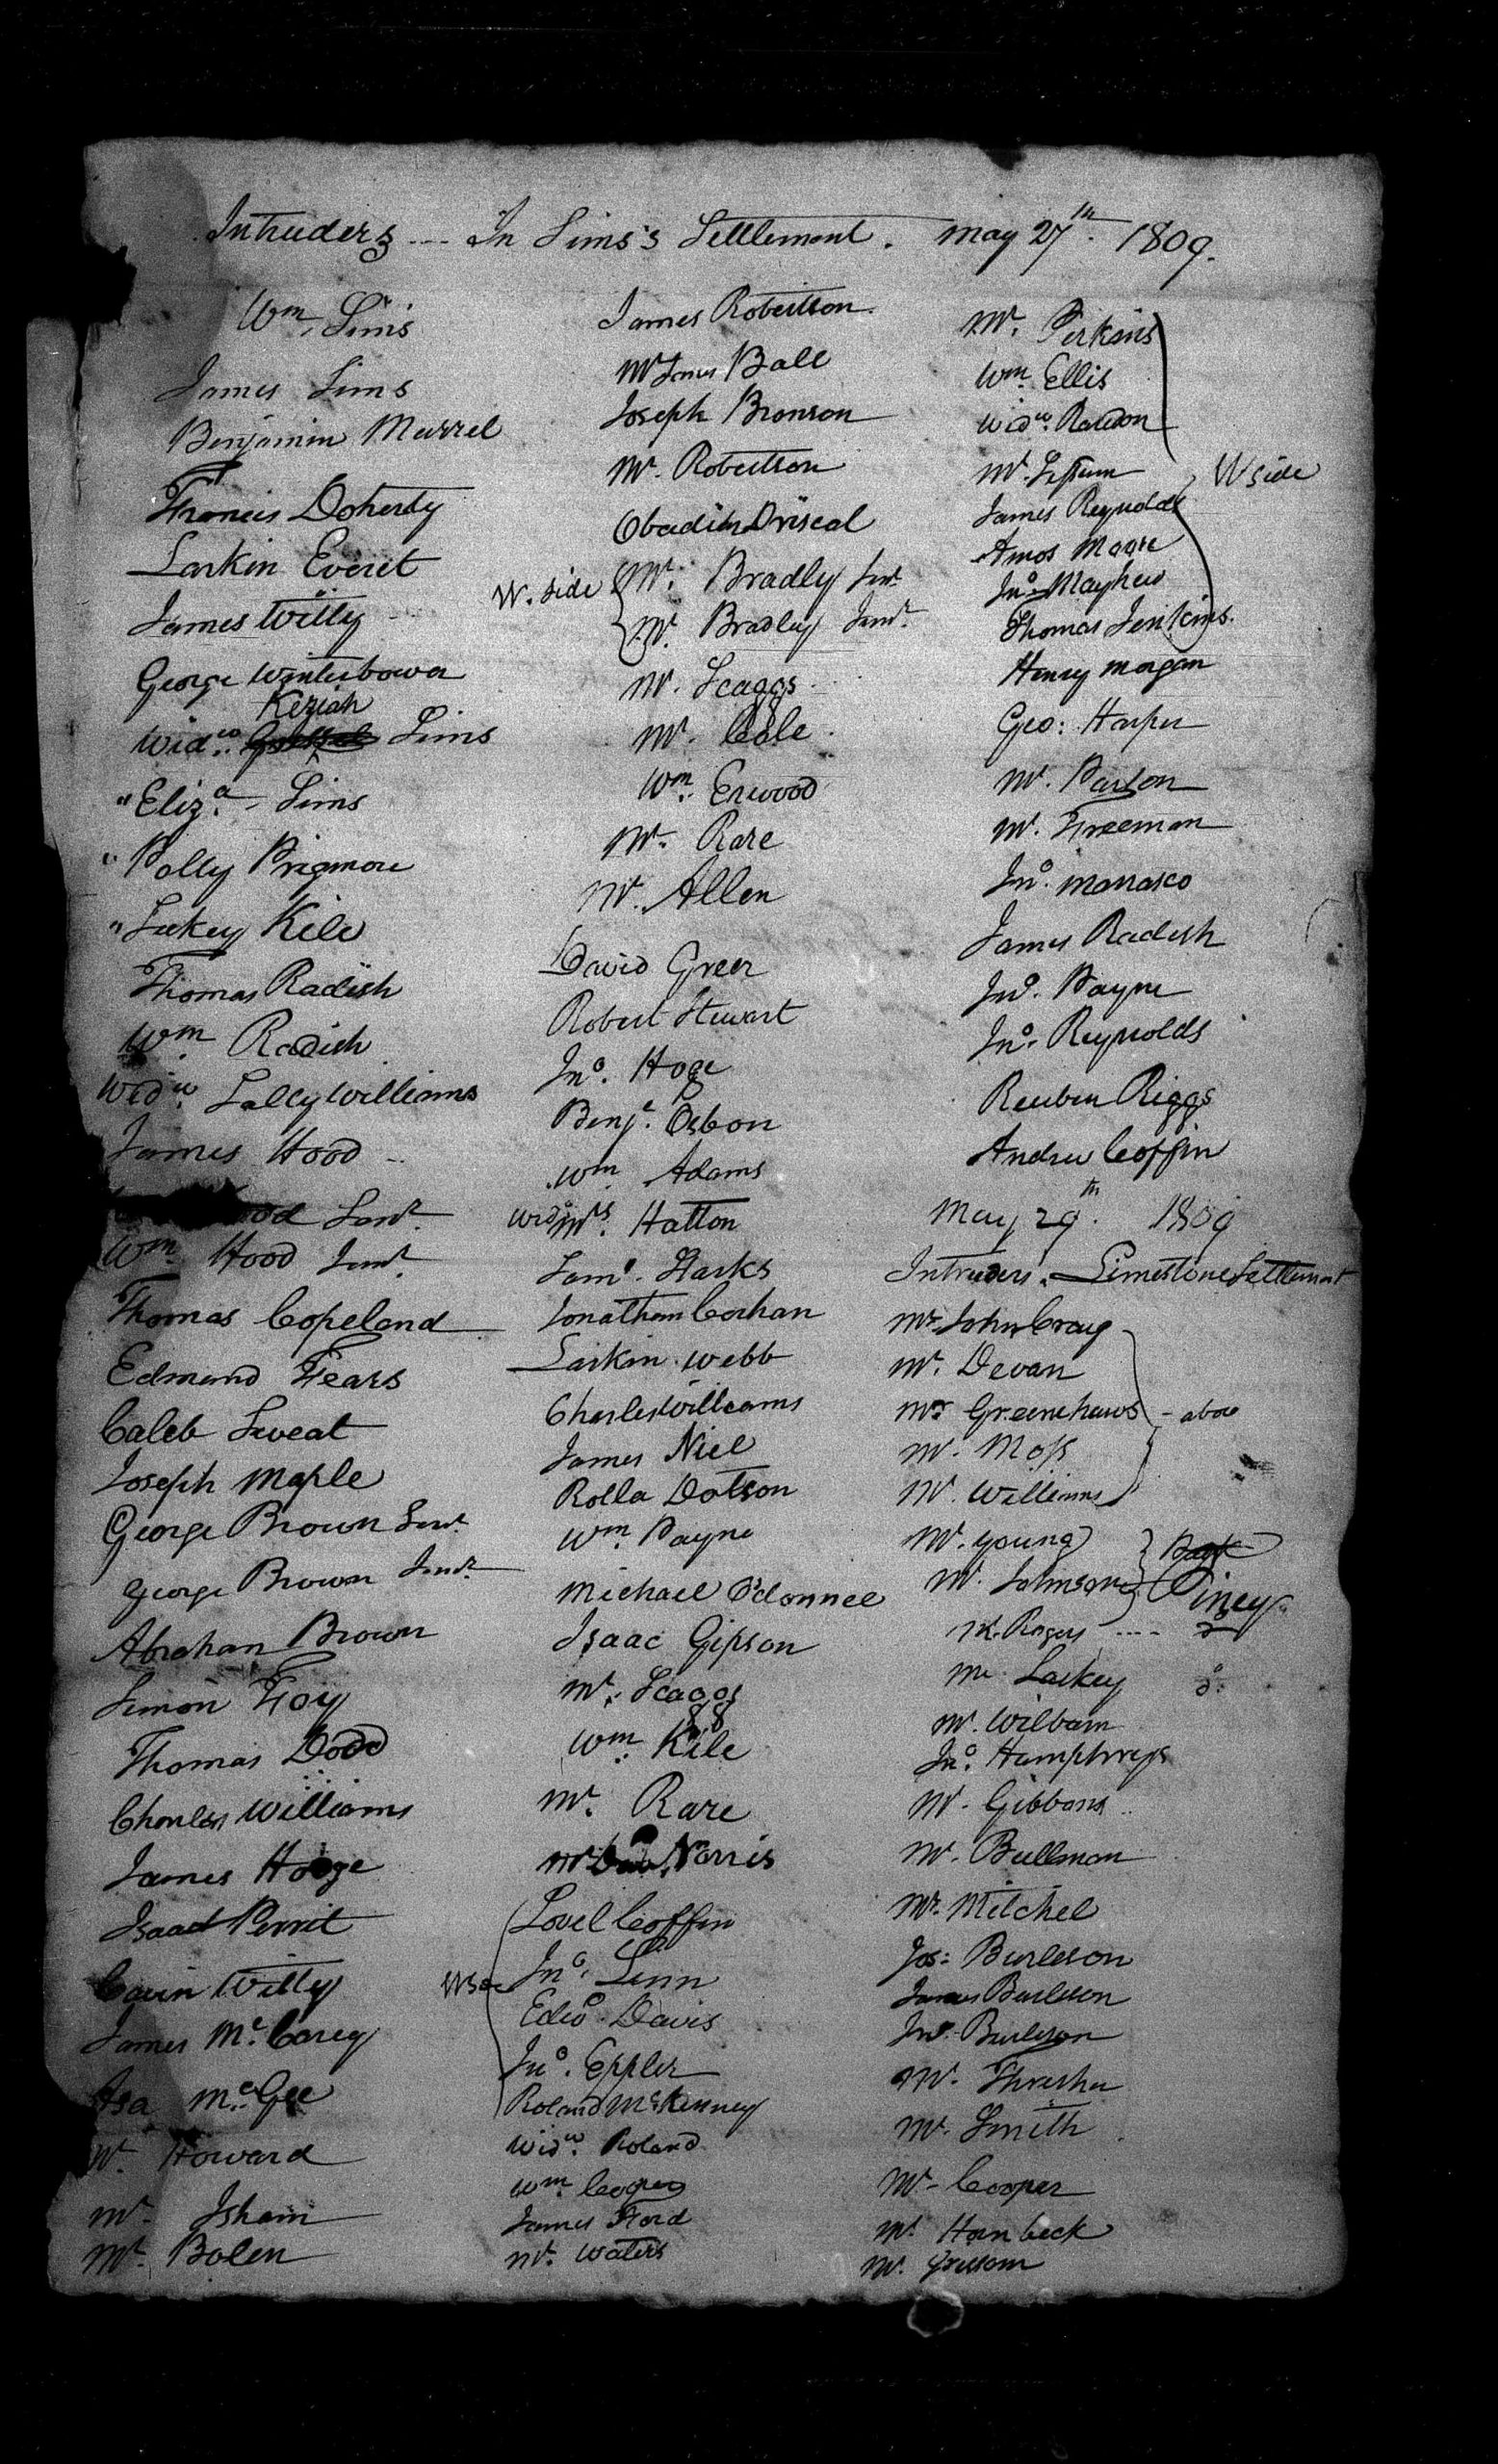 Intruders --- In Sims's Settlement. May 27th. 1809.
Wm. Sims
James Sims
Benjamin Murrel
Francis Doherty
Larkin Everet
James Witty
George Winterbower
Keziah
Widw. Sims
" Eliza. Sims
" Polly Prigmore
" Kile
Thomas Radish
Wm Radish
Widw. Sally Williams
James Hood
Senr.
Wm. Hood Junr.
Thomas Copeland
Edmund Fears
Caleb Sweat
Joseph Maple
George Brown Senr.
George Brown Junr.
Abraham Brown
Simon Foy
Thomas Dodd
Charles Williams
James Hooge
Isaac Perrit
Cavin Witty
James McCarey
Asa McGee
Mr. Howard
Mr. Isham
Mr. Bolen
James Robertson
Mr James Ball
Joseph Bronson
Mr. Robertson
Obadiah Driscal
W. side Mr. Bradley Senr.
Mr. Bradley Junr.
Mr. Scaggs
Mr. Cole
Wm. Erwood
Mr. Rare
Mr. Allen
David Greer
Robert Stewart
Jno. Hoge
Benj. Osbon
Wm. Adams
Widw. Mrs. Hatton
Saml. Starks
Jonathan Cochan
Larkin Webb
Charles Williams
James Niel
Rolla Dotson
Wm. Payne
Michael Odonnel
Isaac Gipson
Mr. Scaggs
Wm. Kile
Mr. Rare
Mr Norris
Lovel Coffin
Jno. Linn
Edwd. Davis
Jno. Eppler
Roland McKenney
Widw. Roland
Wm. Cooper
James Ford
Mr. Waters
Mr. Perkins
Wm. Ellis
Widw. Rawdon
Mr. W side
James Reynolds
Amos Moore
Jno. Mayhew
Thomas Jenkins.
Henry Morgan
Geo: Harper
Mr. Parson
Mr. Freeman
Jno. Manasco
James Radish
Jno. Payne
Jno. Reynolds
Reuben Riggs
Andrew Coffin
May 29th. 1809
Intruders. Limestone Settlement
Mr. John Craig
Mr. Devan
Mr. Greenehaws - above
Mr. Moss
Mr. Williams
Mr. Young
Mr. Johnson Piney
Mr. Rogers ---- do
Mr. Lackey do.
Mr. Wilbarn
Jno. Humphreys
Mr. Gibbons
Mr. Bullman
Mr. Mitchel
Jos: Burleson
James Burleson
Jno. Burleson
Mr. Thrasher
Mr. Smith
Mr. Cooper
Mr. Hornbeck
Mr. Grissom